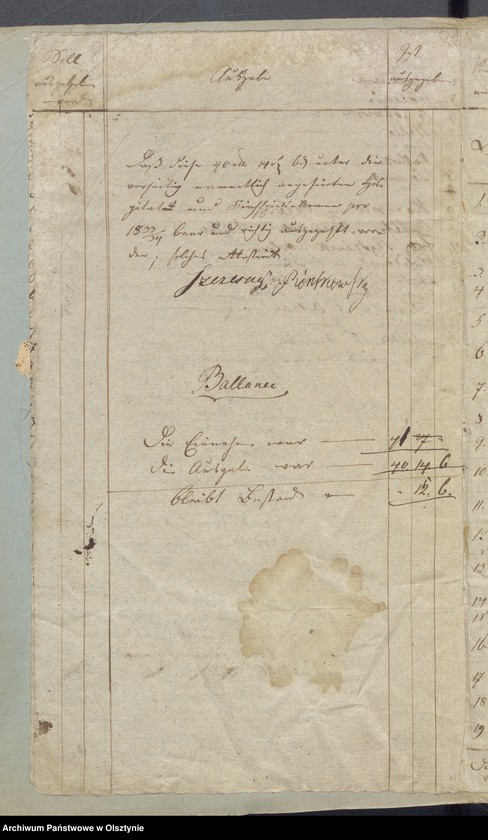 Soll
ausgegeben
werden
Ausgabe
Ist
ausgegeben
Daß diese 40 rtl 14 6 unter die
vorseitig namentlich angeführten Hos-
pitaliten und pro
1833/34 baar und richtig ausgezahlt wor-
den, solches attestirt
Balance
Die Einnahme war
Die Ausgabe war 40 14 6
bleibt Bestand - 12. 6.
1.
2.
3
4
5
6
7.
8
9.
10
11.
12.
13
14
15
16.
17
18
19
Archiwum Państwowe w Olsztynie